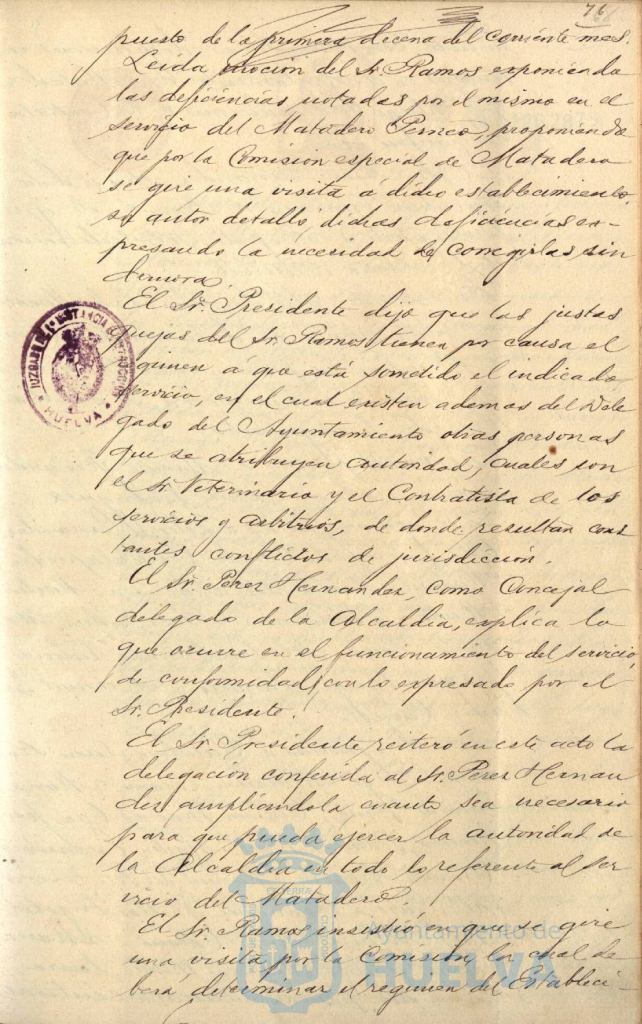 76
puesto de la primera decena del corriente mes.
Leida moción del Sr. Ramos exponiendo
las deficiencias notadas por el mismo en el
servicio del Matadero proponiendo
que por la Comision especial de Matadero
se gire una visita á dicho establecimiento,
su autor detalló dichas deficiencias ex-
presando la necesidad de corregirlas sin
demora.
El Sr. Presidente dijo que las justas
quejas del Sr. Ramos tienen por causa el
regimen á que está sometido el indicado
servicio, en el cual existen ademas del Dele-
gado del Ayuntamiento otras personas
que se atribuyen autoridad, cuales son
el Sr. Veterinario y el Contratista de los
servicios y arbitrios, de donde resultan cons-
tantes conflictos de jurisdicción.
El Sr. Perez Hernandez, como Concejal
delegado de la Alcaldia, explica lo
que ocurre en el funcionamiento del servicio,
de conformidad con lo expresado por el
Sr. Presidente.
El Sr. Presidente reiteró en este acto la
delegación conferida al Sr. Perez Hernan
dez ampliándola cuanto sea necesario
para que pueda ejercer la autoridad de
la Alcaldia en todo lo referente al ser
vicio del Matadero.
El Sr. Ramos insistió en que se gire
una visita por la Comision, la cual de
berá determinar el regimen del Estableci-
JUZGADO DE 1ª INSTANCIA
HUELVA
Ayuntamiento de
HUELVA